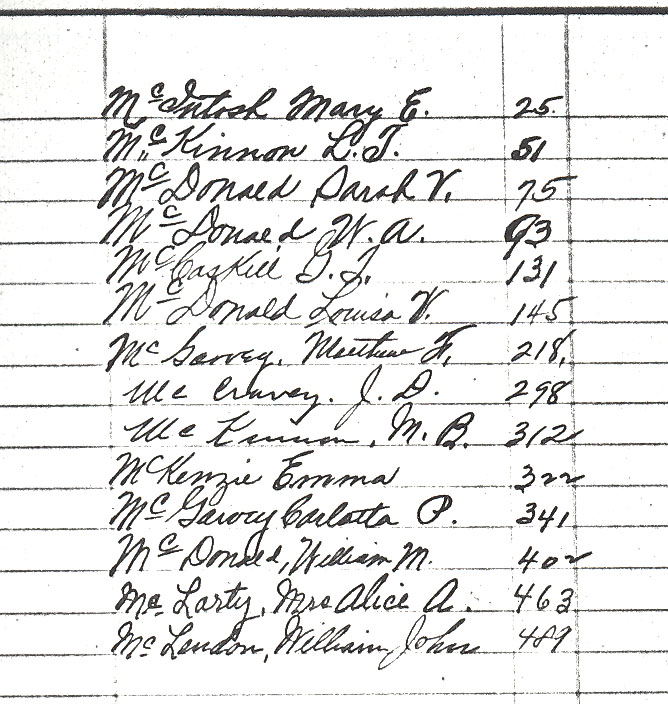 McIntosh Mary E. 25.
McKinnon L.T. 51
McDonald Sarah V. 75
McDonald W.A. 93
McCaskill G.T. 131
McDonald Louisa V. 145
McGarvey, Matthew F. 218.
McCravey. J.D. 298
McKinnon, M.B. 312
McKenzie Emma 322
McGarvey Carlotta P. 341
McDonald, William M. 402
McLarty, Mrs Alice A. 463
McLendon, William John 489